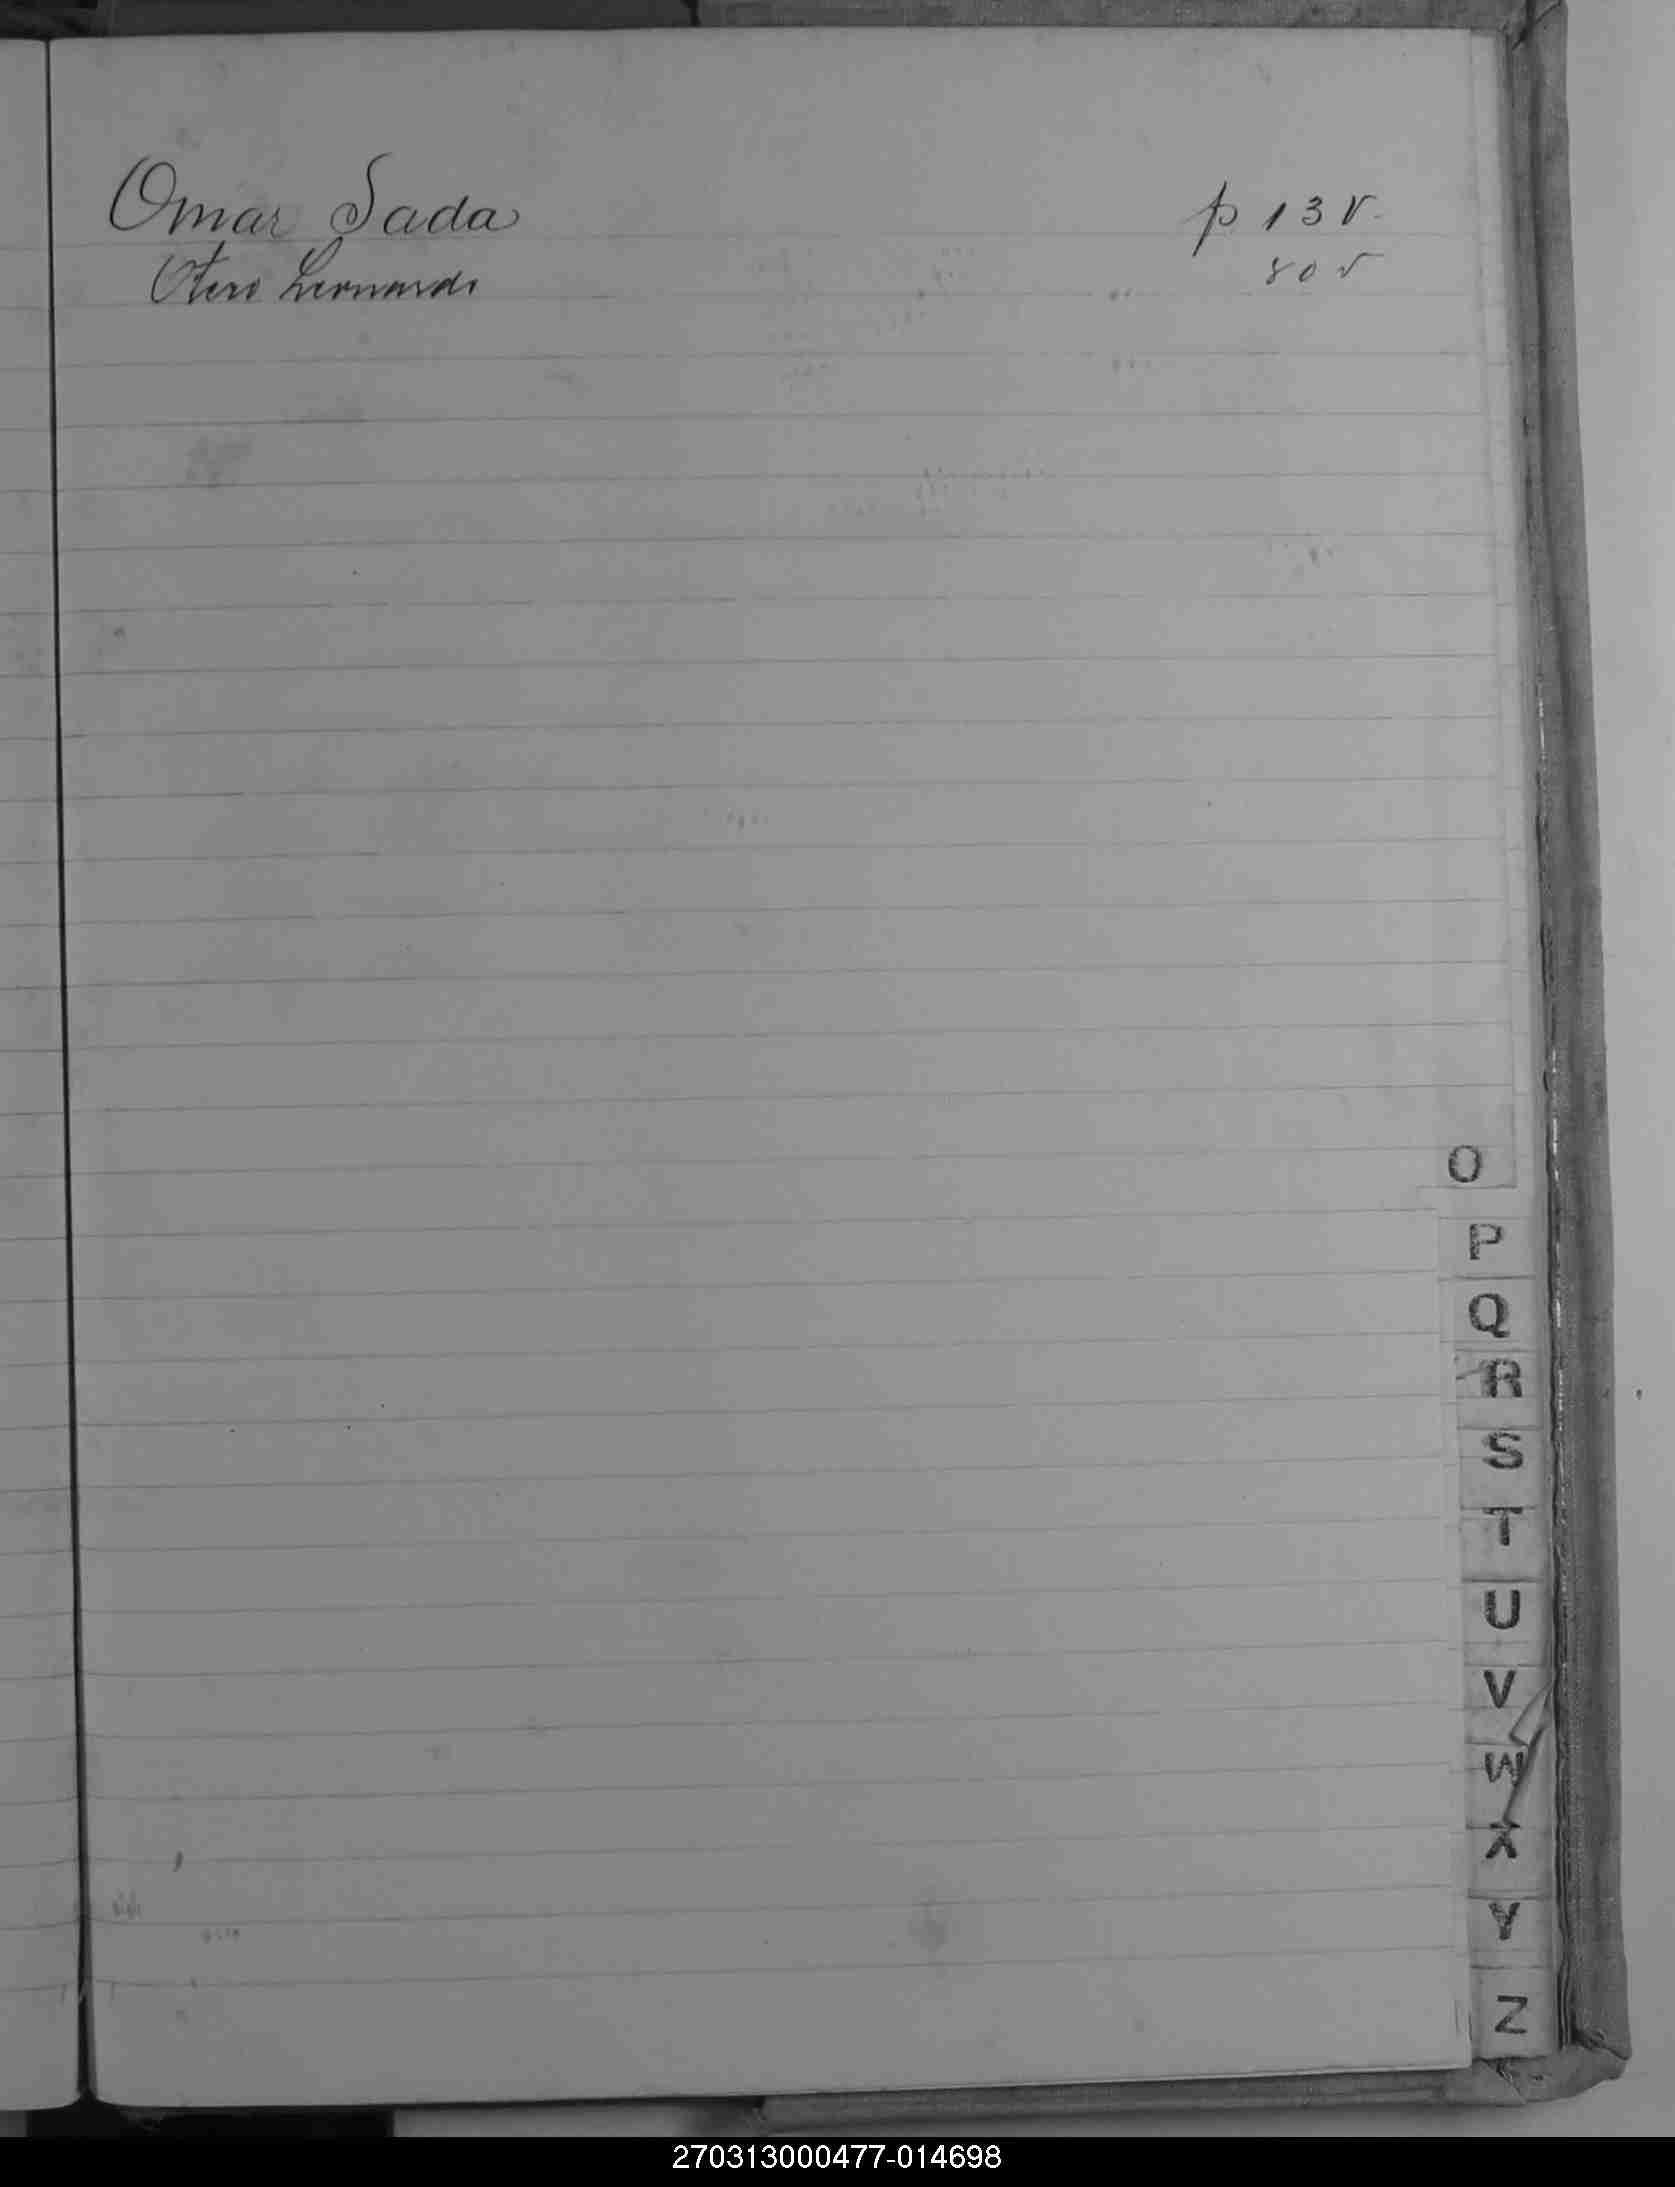 Omar Sada p 13 v.
Otero Leonardo 80 v
O
P
Q
R
S
T
U
V
W
X
Y
Z
270313000477-014698